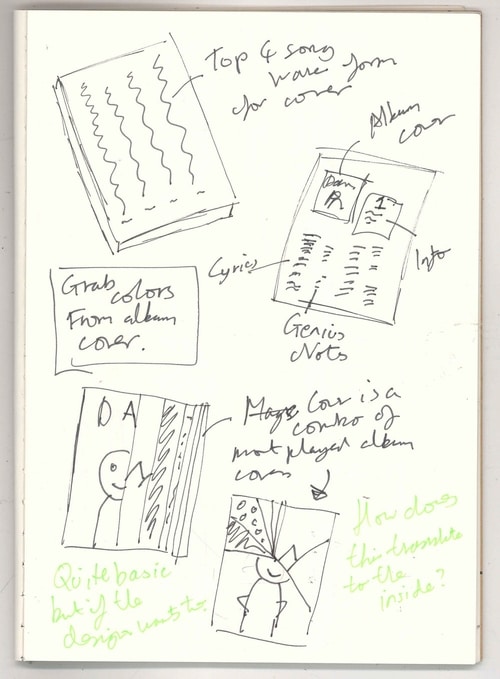 Top 4 song
wave form
for cover
Album
cover
Dam
1
Info
Lyrics
Genius
Notes
Grab
colors
From album
cover.
D A
Cover is a
combo of
most played album
covers
How does
this translate
to the
inside?
Quite basic
but if the
design wants to.